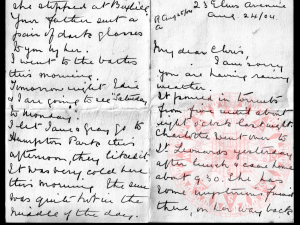 23 Elms Avenue
Aug. 24/04.
My dear Chris.
I am sorry
you are having rainy
weather.
It poured in torrents
from five until about
eight o'clock last night.
Charlotte went over to
St Leonards yesterday
after lunch & came home
about 9.30. She had
some mysterious friend
there, on her way back
she stopped at Bexhill.
Your father sent a
pair of dark glasses
to you by her.
I went to the baths
this morning.
Tomorrow night Edie
& I are going to see "Saturday
to Monday".
I let James & Gray go to
Hampton Park this
afternoon, they liked it.
It was very cold here
this morning. The sun
was quite hot in the
middle of the day.